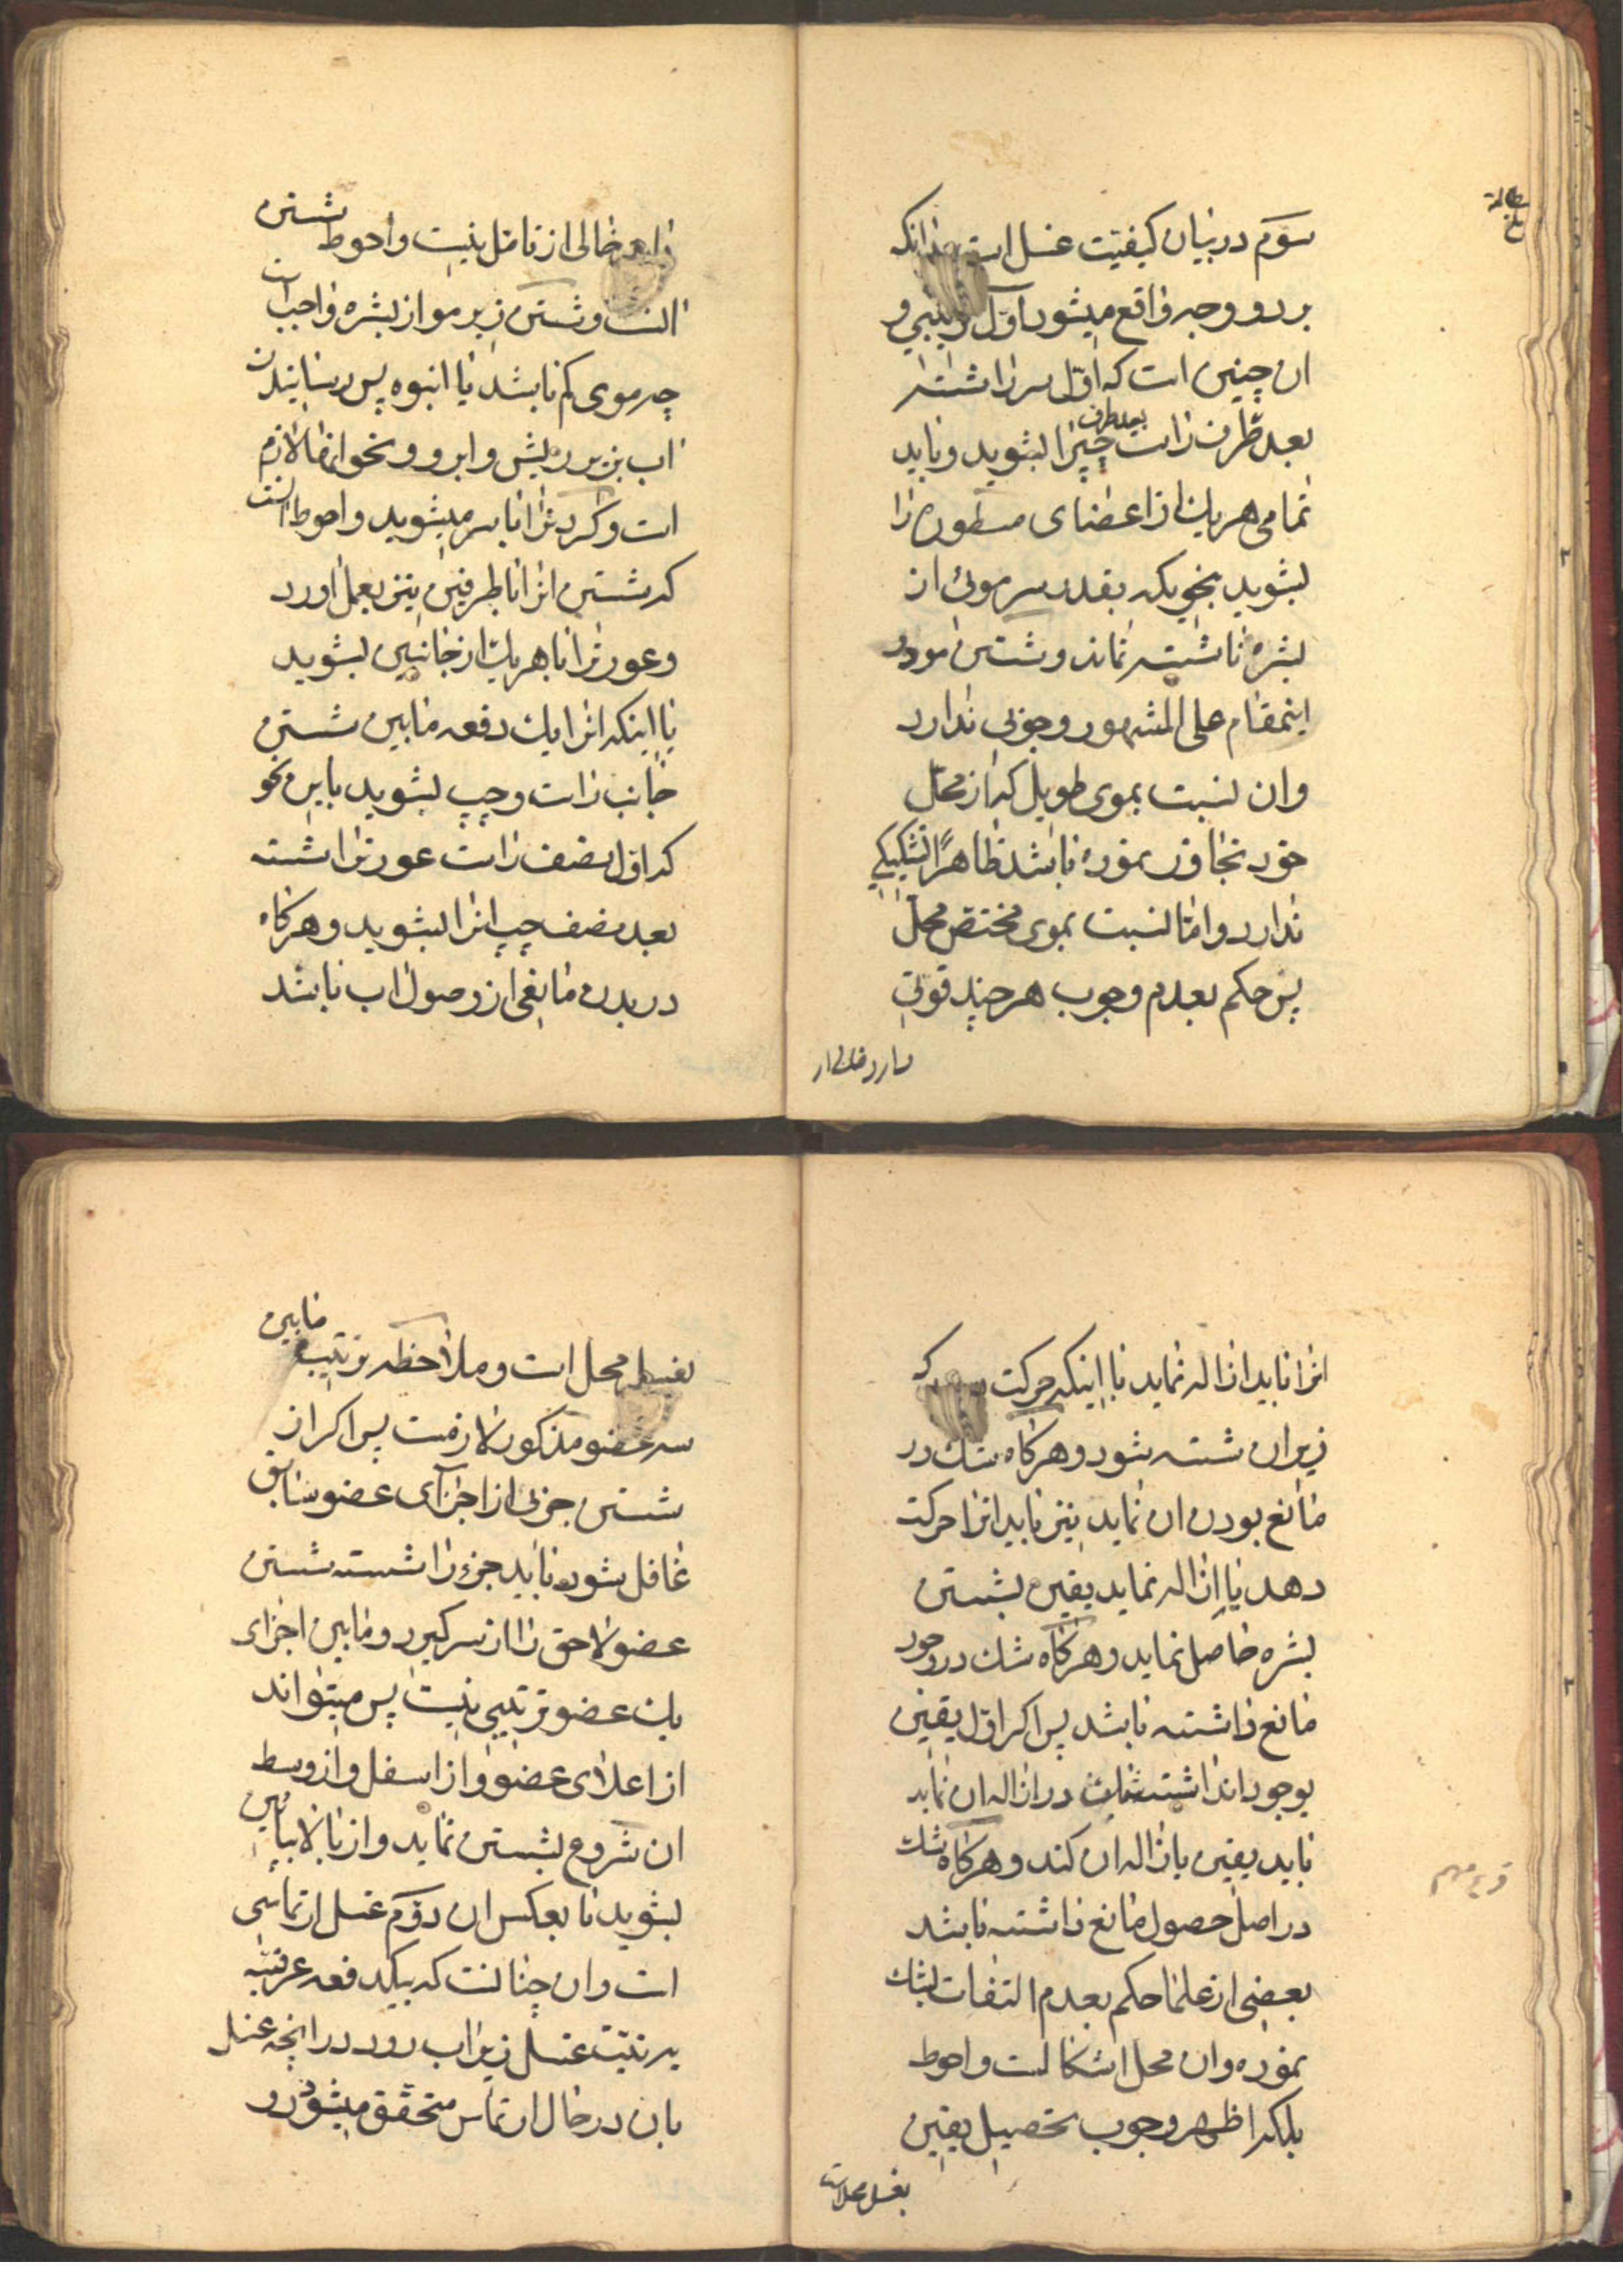 سوم در بیان کیفیت غسل است بدانکه
بر دو وجه واقع میشود اول ترتیبی و
ان چنین است که اول سر را شسته
بعد طرف راست بعد طرف چپ را بشوید و باید
تمامی هر یک از اعضای مسطوره را
بشوید بنحویکه بقدر سر موئی از
بشره ناشسته نماند و شستن مو در
اینمقام علی المشهور وجوبی ندارد
و ان نسبت بموی طویل که از محل
خود تجاوز نموده باشد ظاهرا تشکیکی
ندارد و اما نسبت بموی مختص محل
پس حکم بعدم وجوب هر چند قوتی
دارد خالی از
دارد خالی از تامل نیست و احوط شستن
انست و شستن زیر مو از بشره واجب است
چه موی کم باشد یا انبوه پس رسانیدن
اب بزیر ریش و ابرو و نحو انها لازم
است و گردنرا با سر میشوید و احوط انست
که شستن انرا با طرفین نیز بعمل اورد
و عورترا با هر یک از جانبین بشوید
یا اینکه انرا یک دفعه مابین شستن
جانب راست و چپ بشوید باین نحو
که اول نصف راست عورترا شسته
بعد نصف چپ انرا بشوید و هرگاه
در بدن مانعی از وصول اب باشد
انرا باید ازاله نماید یا اینکه حرکت دهد که
زیر ان شسته شود و هرگاه شک در
مانع بودن ان نماید نیز باید انرا حرکت
دهد یا ازاله نماید یقین بشستن
بشره حاصل نماید و هرگاه شک در وجود
مانع داشته باشد پس اگر اول یقین
بوجود انداشته شک در ازاله ان نماید
باید یقین بازاله ان کند و هرگاه شک
در اصل حصول مانع داشته باشد
بعضی از علما حکم بعدم التفات بشک
نموده و ان محل اشکالست و احوط
بلکه اظهر وجوب تحصیل یقین
بغسل محل است
بغسل محل است و ملاحظه ترتیب مابین
سه عضو مذکور لازمست پس اگر از
شستن جزئی از اجزآی عضو سابق
غافل شود باید جزء را شسته شستن
عضو لاحق را از سر گیرد و مابین اجزای
یک عضو ترتیبی نیست پس میتواند
از اعلای عضو و از اسفل و از وسط
ان شروع بشستن نماید و از بالا بپائین
بشوید یا بعکس ان دوم غسل ارتماسی
است و ان چنانست که بیکدفعه عرفیه
به نیت غسل زیر اب رود در انچه غسل
بان در حال ارتماس متحقق میشود و